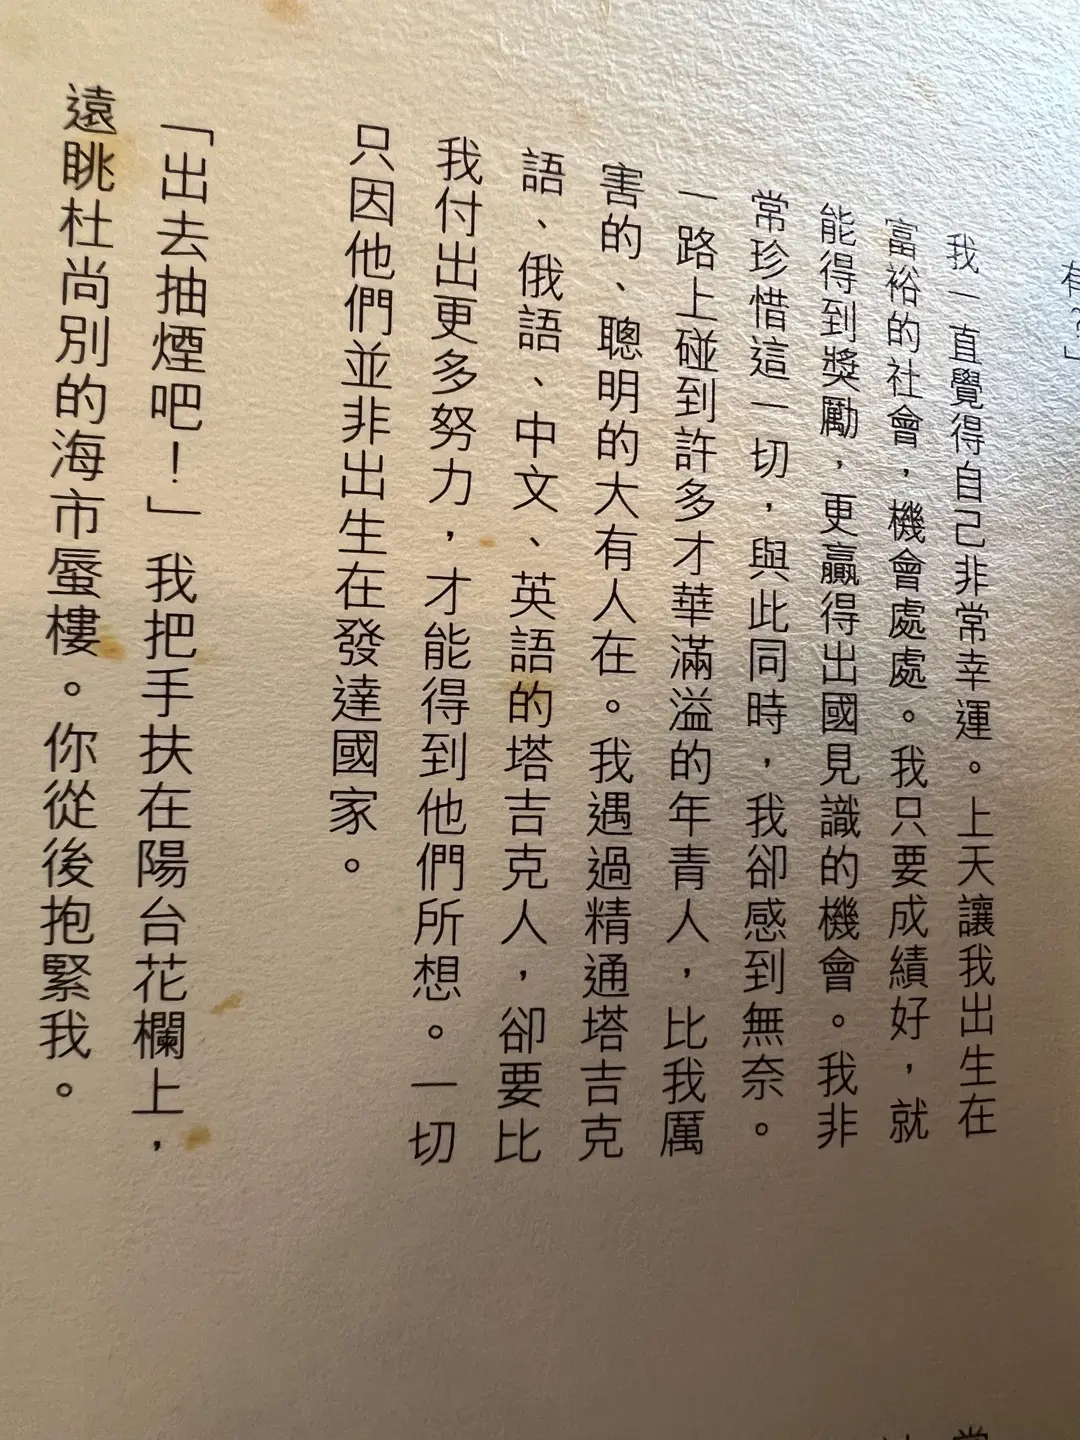 有？」
我一直覺得自己非常幸運。上天讓我出生在
富裕的社會，機會處處。我只要成績好，就
能得到獎勵，更贏得出國見識的機會。我非
常珍惜這一切，與此同時，我卻感到無奈。
一路上碰到許多才華滿溢的年青人，比我厲
害的、聰明的大有人在。我遇過精通塔吉克
語、俄語、中文、英語的塔吉克人，卻要比
我付出更多努力，才能得到他們所想。一切
只因他們並非出生在發達國家。
「出去抽煙吧！」我把手扶在陽台花欄上，
遠眺杜尚別的海市蜃樓。你從後抱緊我。